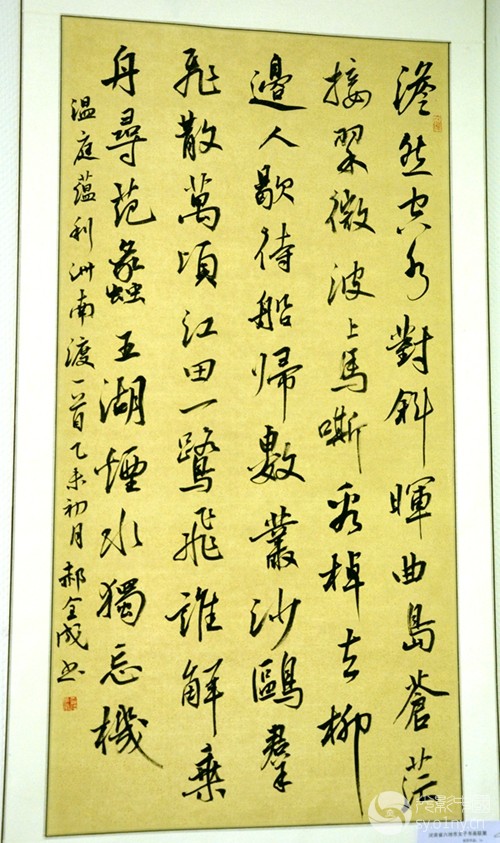 澹然空水對斜暉曲島蒼茫
接翠微波上馬嘶看棹去柳
邊人歇待船歸數叢沙鷗羣
飛散萬頃江田一鷺飛誰解乘
舟尋范蠡五湖煙水獨忘機
温庭蕴利洲南渡一首乙未初月郝全成书